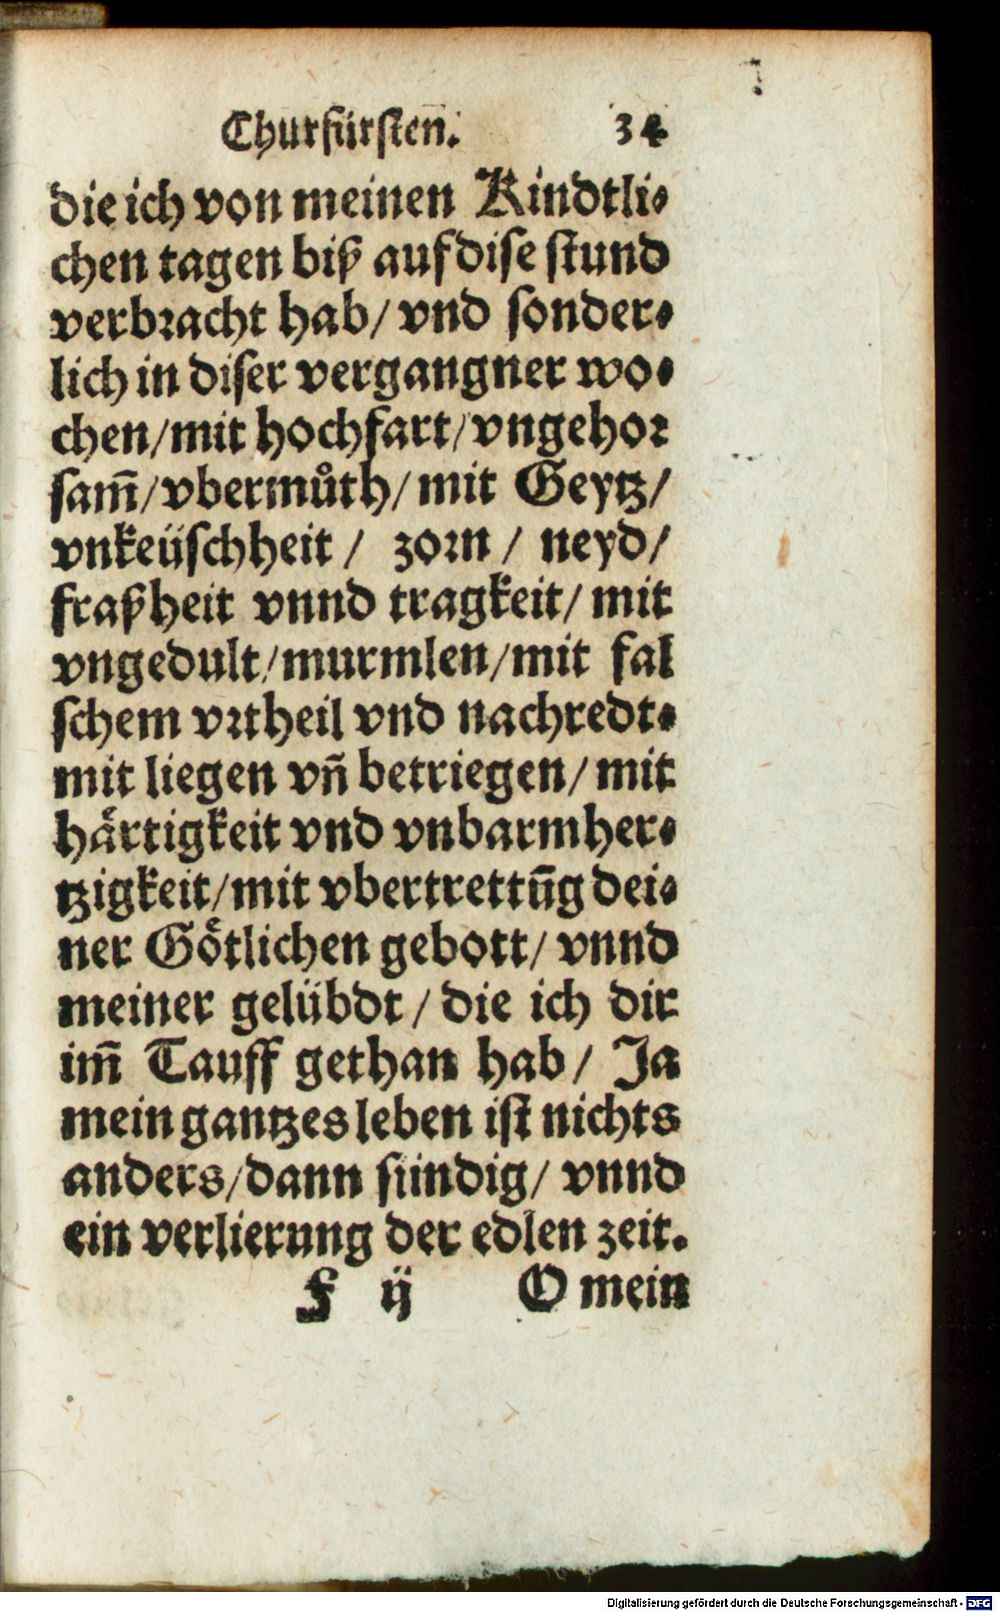 Churfürsten. 34
die ich von meinen Kindtli⸗
chen tagen biß auf dise stund
verbracht hab/ vnd sonder⸗
lich in diser vergangner wo⸗
chen/mit hochfart/vngehor
sam̄/vbermůth/mit Geytz/
vnkeüschheit/ zorn/ neyd/
fraßheit vnnd tragkeit/ mit
vngedult/murmlen/mit fal
schem vrtheil vnd nachredt⸗
mit liegen vn̄ betriegen/ mit
haͤrtigkeit vnd vnbarmher⸗
tzigkeit/mit vbertrettūg dei⸗
ner Goͤtlichen gebott/ vnnd
meiner gelübdt/ die ich dir
im̄ Tauff gethan hab/ Ja
mein gantzes leben ist nichts
anders/dann sündig/ vnnd
ein verlierung der edlen zeit.
F ij O mein
Digitalisierung gefördert durch die Deutsche Forschungsgemeinschaft - DFG